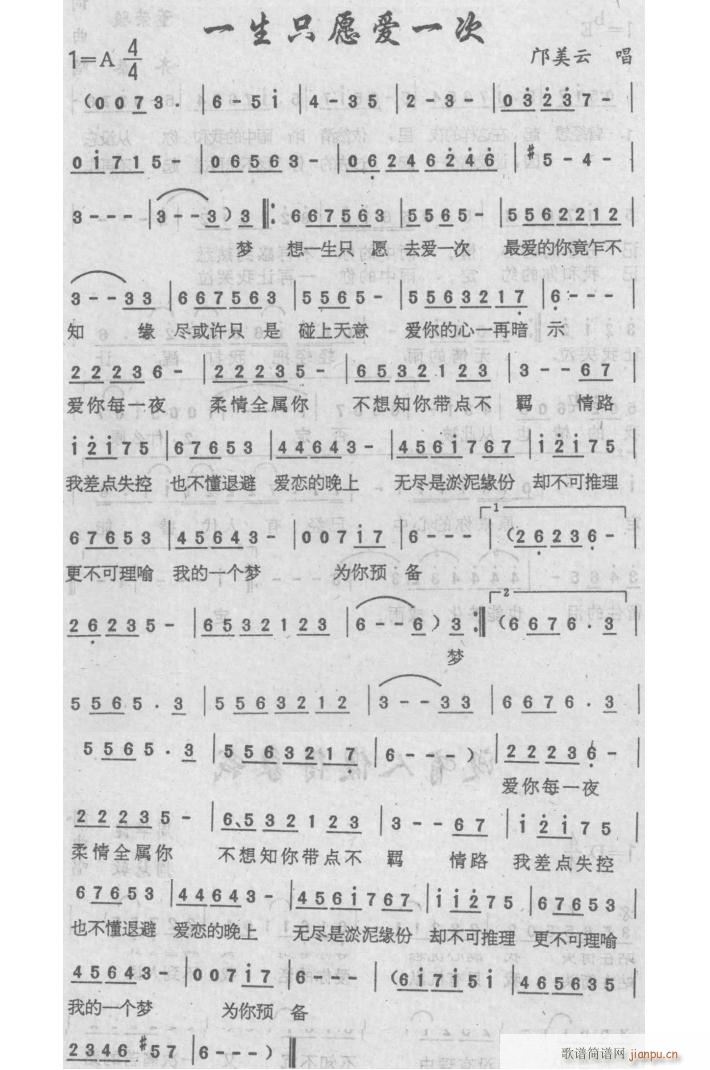 一生只愿爱一次
1=A 4/4 邝美云 唱
(0 0 7 3. | 6 - 5 i | 4 - 3 5 | 2 - 3 - | 0 3 2 3 7 |
0 i 7 1 5 - | 0 6 5 6 3 - | 0 6 2 4 6 2 4 6 | #5 - 4 - |
3 - - - | 3 - - 3 ) 3 ‖: 6 6 7 5 6 3 | 5 5 6 5 - | 5 5 6 2 2 1 2 |
梦 想一生只 愿 去爱一次 最爱的你竟乍不
3 - - 3 3 | 6 6 7 5 6 3 | 5 5 6 5 - | 5 5 6 3 2 1 7 | 6 - - - |
知 缘 尽或许只 是 碰上天意 爱你的心一再暗 示
2 2 2 3 6 - | 2 2 2 3 5 - | 6 5 3 2 1 2 3 | 3 - - 6 7 |
爱你每一夜 柔情全属你 不想知你带点不 羁 情路
i 2 i 7 5 | 6 7 6 5 3 | 4 4 6 4 3 - | 4 5 6 i 7 6 7 | i 2 i 7 5 |
我差点失控 也不懂退避 爱恋的晚上 无尽是淤泥缘份 却不可推理
6 7 6 5 3 | 4 5 6 4 3 - | 0 0 7 i 7 | 6 - - - | 1 (2 6 2 3 6 - |
更不可理喻 我的一个梦 为你预 备
2 6 2 3 5 - | 6 5 3 2 1 2 3 | 6 - - 6 ) 3 :‖ 2 (6 6 7 6 . 3 |
梦
5 5 6 5 . 3 | 5 5 6 3 2 1 2 | 3 - - 3 3 | 6 6 7 6 . 3 |
5 5 6 5 . 3 | 5 5 6 3 2 1 7 | 6 - - - ) | 2 2 2 3 6 - |
爱你每一夜
2 2 2 3 5 - | 6. 5 3 2 1 2 3 | 3 - - 6 7 | i 2 i 7 5 |
柔情全属你 不想知你带点不 羁 情路 我差点失控
6 7 6 5 3 | 4 4 6 4 3 - | 4 5 6 i 7 6 7 | i i 2 7 5 | 6 7 6 5 3 |
也不懂退避 爱恋的晚上 无尽是淤泥缘份 却不可推理 更不可理喻
4 5 6 4 3 - | 0 0 7 i 7 | 6 - - - | (6 i 7 i 5 i | 4 6 5 6 3 5 |
我的一个梦 为你预 备
2 3 4 6 #5 7 | 6 - - - ) ‖
歌谱简谱网
jianpu.cn